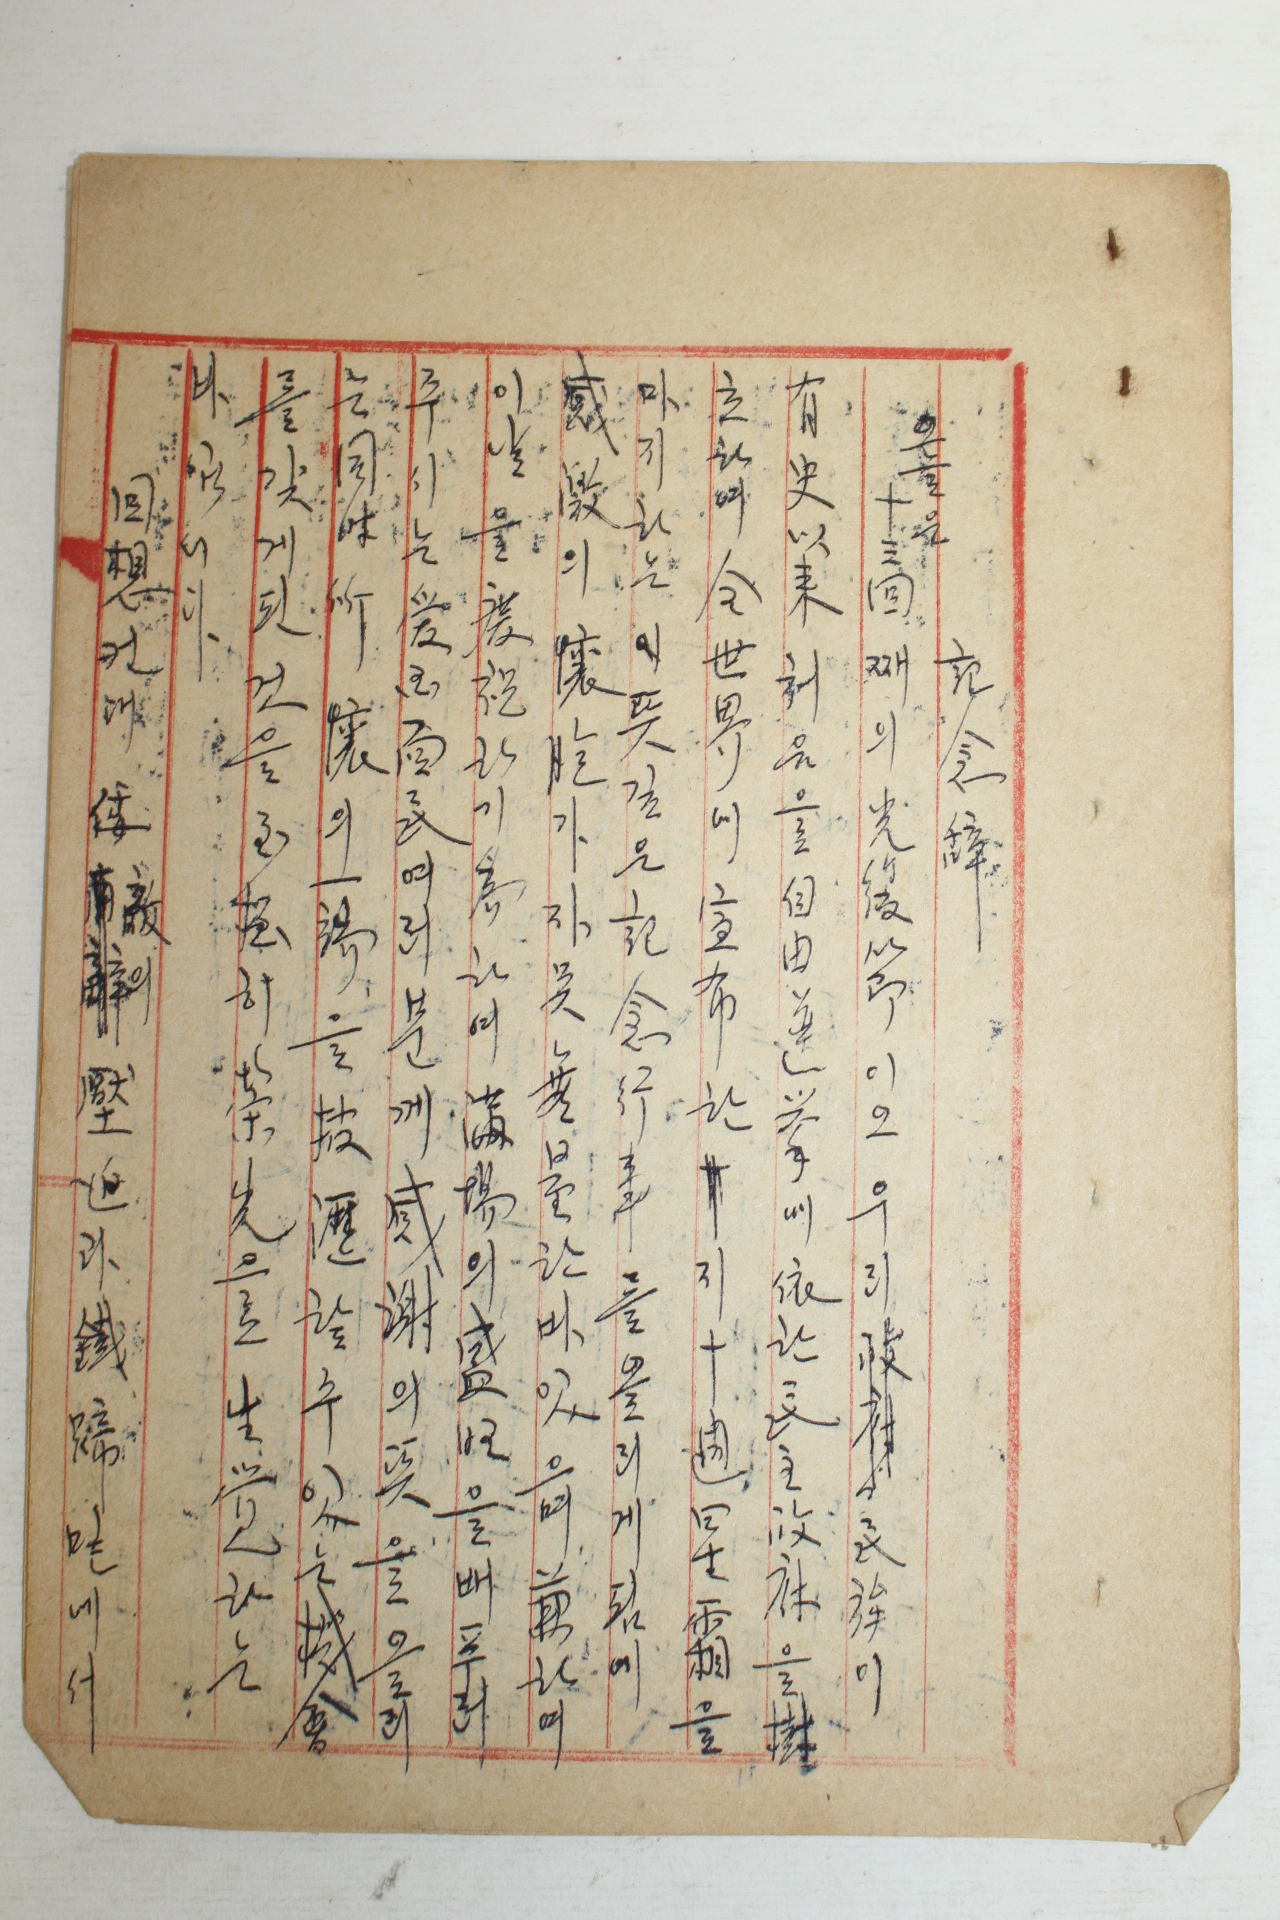 記念辭
오늘은
十三回째의 光復節이오 우리 民族이
有史以來 처음으로 自由選擧에 依한 民主政府을 樹
立하여 全世界에 宣布한 지 十週星霜을
마지하는 이 뜻깊은 記念行事를 올리게 됨에
感激의 懷抱가 자못 無量한 바 있으며 兼하여
이날을 慶祝하기 爲하여 滿場의 盛旺을 베푸러
주시는 愛國面民 여러분께 感謝의 뜻을 올리
는 同時 所懷의 一端을 披瀝할 수 있는 機會
를 갖게 된 것을 至極히 榮光으로 生覺하는
바입니다
回想컨대 倭敵의 壓迫과 鐵蹄 밑에서